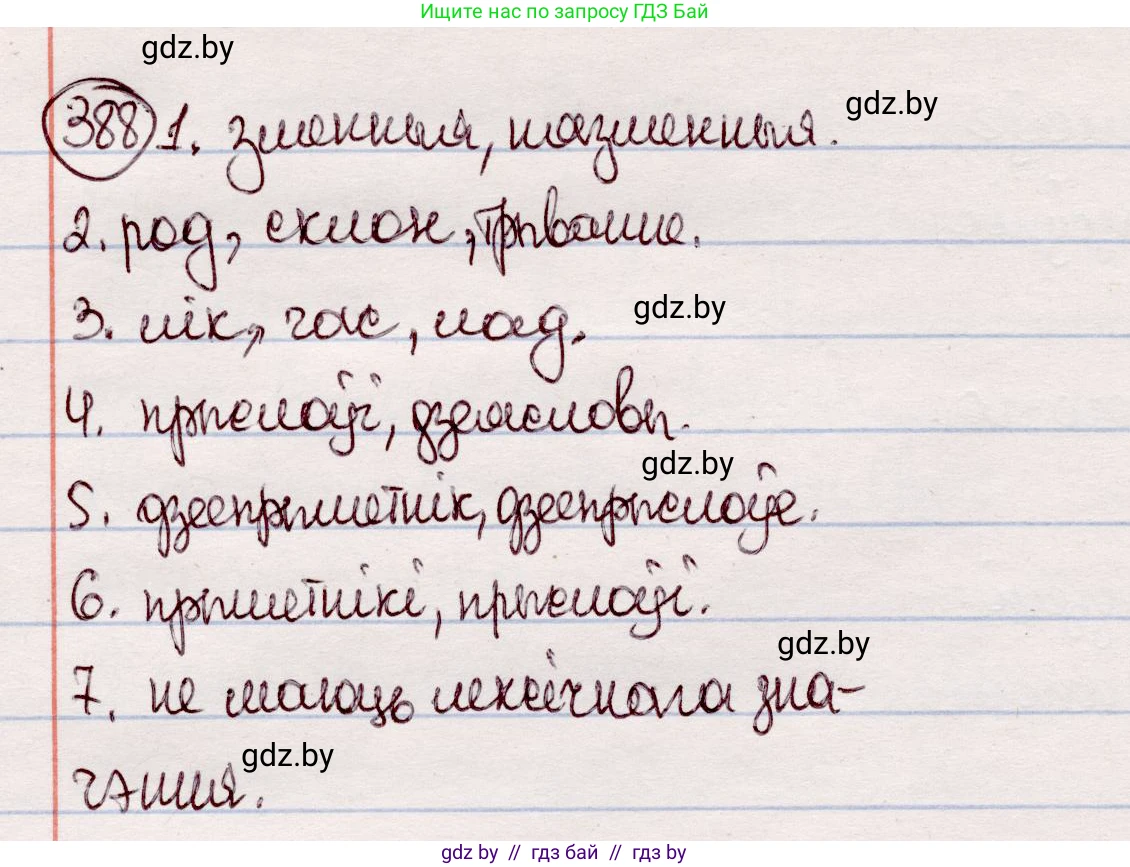 Ищите нас по запросу ГДЗ Бай
gdz.by
gdz.by
388 1. зменныя, нязменныя.
2. род, склон, трыванне.
gdz.by
3. лік, час, лад.
4. прыслоўі, дзеясловы.
gdz.by
5. дзеепрыметнік, дзеепрыслоўе.
6. прыметнікі, прыслоўі.
gdz.by
7. не маюць лексічнага зна-
gdz.by
чэння.
gdz by // гдз бай // гдз by